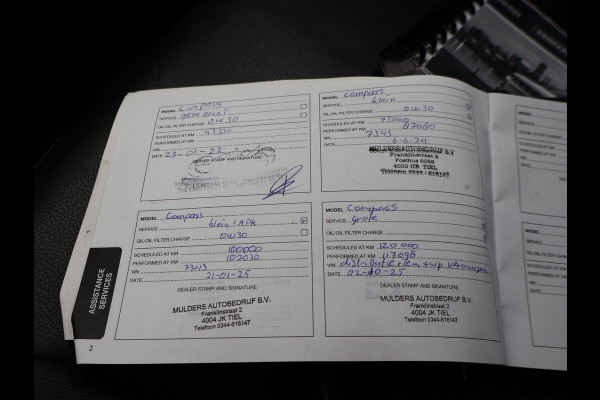 MODEL Compass
SERVICE
OIL/OIL FILTER CHANGE 0W30
SCHEDULED AT KM
PERFORMED AT KM
VIN
DATE 23-01-23
DEALER STAMP AND SIGNATURE
MODEL Compass
SERVICE klein
OIL/OIL FILTER CHANGE 0W30
SCHEDULED AT KM 75000
PERFORMED AT KM 87080
VIN 7343
DATE 6-6-24
MULDERS AUTOBEDRIJF B.V.
Franklinstraat 2
Postbus 6086
4000 HB TIEL
Telefoon 0344-616147
MODEL Compass
SERVICE klein / APK
OIL/OIL FILTER CHANGE 0W30
SCHEDULED AT KM 100000
PERFORMED AT KM 102030
VIN 7343
DATE 21-01-25
DEALER STAMP AND SIGNATURE
MULDERS AUTOBEDRIJF B.V.
Franklinstraat 2
4004 JK TIEL
Telefoon 0344-616147
MODEL Compass
SERVICE grote
OIL/OIL FILTER CHANGE
SCHEDULED AT KM 120.000
PERFORMED AT KM 117098
VIN distributieriem + wp vervangen
DATE 02-10-25
DEALER STAMP AND SIGNATURE
MULDERS AUTOBEDRIJF B.V.
Franklinstraat 2
4004 JK TIEL
Telefoon 0344-616147
ASSISTANCE
SERVICES
2
MODEL
SERVICE
OIL/OIL
SCHEDULED
PERFORMED
VIN
DATE
MODEL
SERVICE
OIL/OIL
SCHEDULED
PERFORMED
VIN
DATE